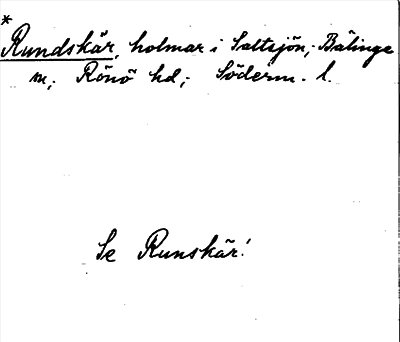 *
Rundskär, holmar i Saltsjön, Bälinge
m, Rönö hd, Söderm. l.
Se Runskär!